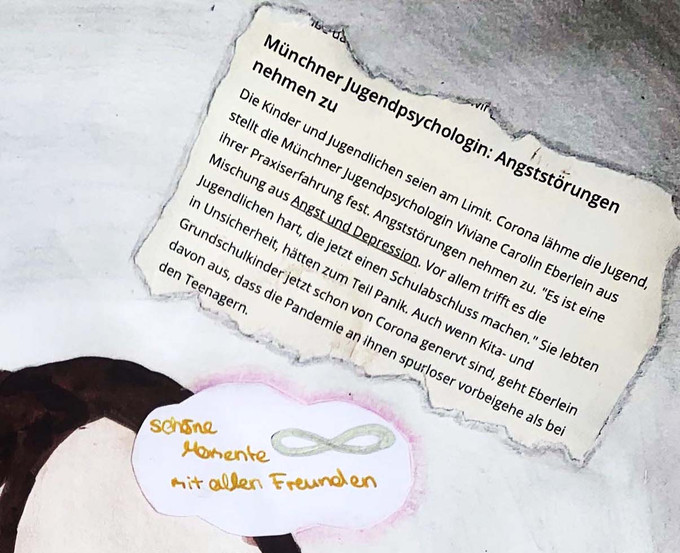 Münchner Jugendpsychologin: Angststörungen
nehmen zu
Die Kinder und Jugendlichen seien am Limit. Corona lähme die Jugend,
stellt die Münchner Jugendpsychologin Viviane Carolin Eberlein aus
ihrer Praxiserfahrung fest. Angststörungen nehmen zu. "Es ist eine
Mischung aus Angst und Depression. Vor allem trifft es die
Jugendlichen hart, die jetzt einen Schulabschluss machen." Sie lebten
in Unsicherheit, hätten zum Teil Panik. Auch wenn Kita- und
Grundschulkinder jetzt schon von Corona genervt sind, geht Eberlein
davon aus, dass die Pandemie an ihnen spurloser vorbeigehe als bei
den Teenagern.
schöne
Momente
mit allen Freunden